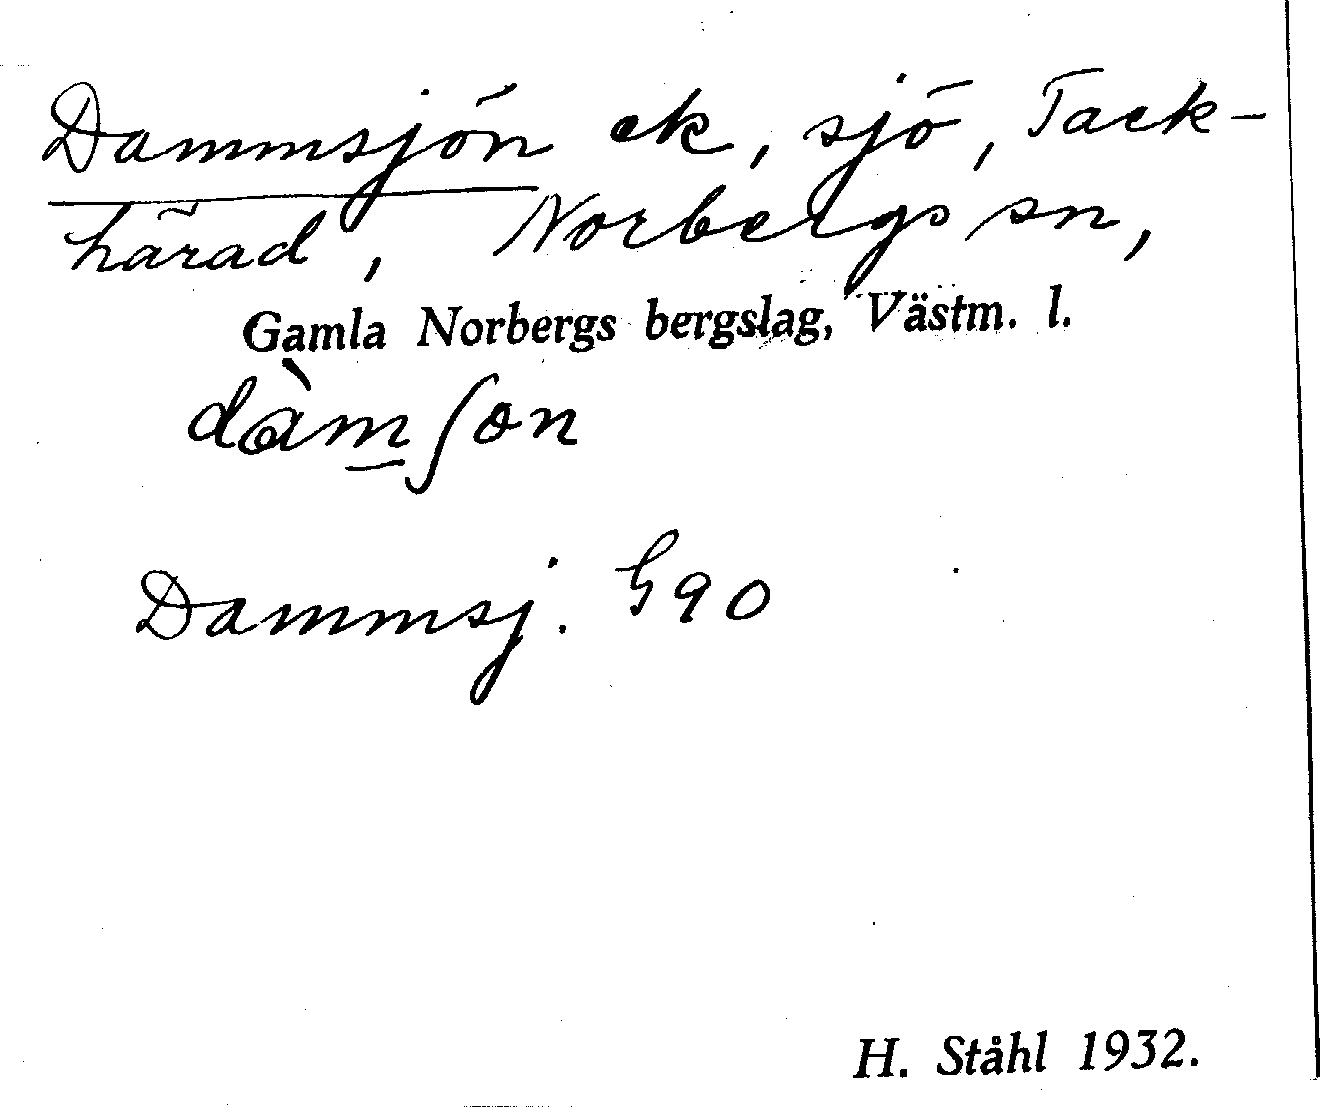 Dammsjön ek, sjö, Tack-
härad, Norbergs sn,
Gamla Norbergs bergslag, Västm. l.
dàm̲ʃɵn
Dammsj. G90
H. Ståhl 1932.